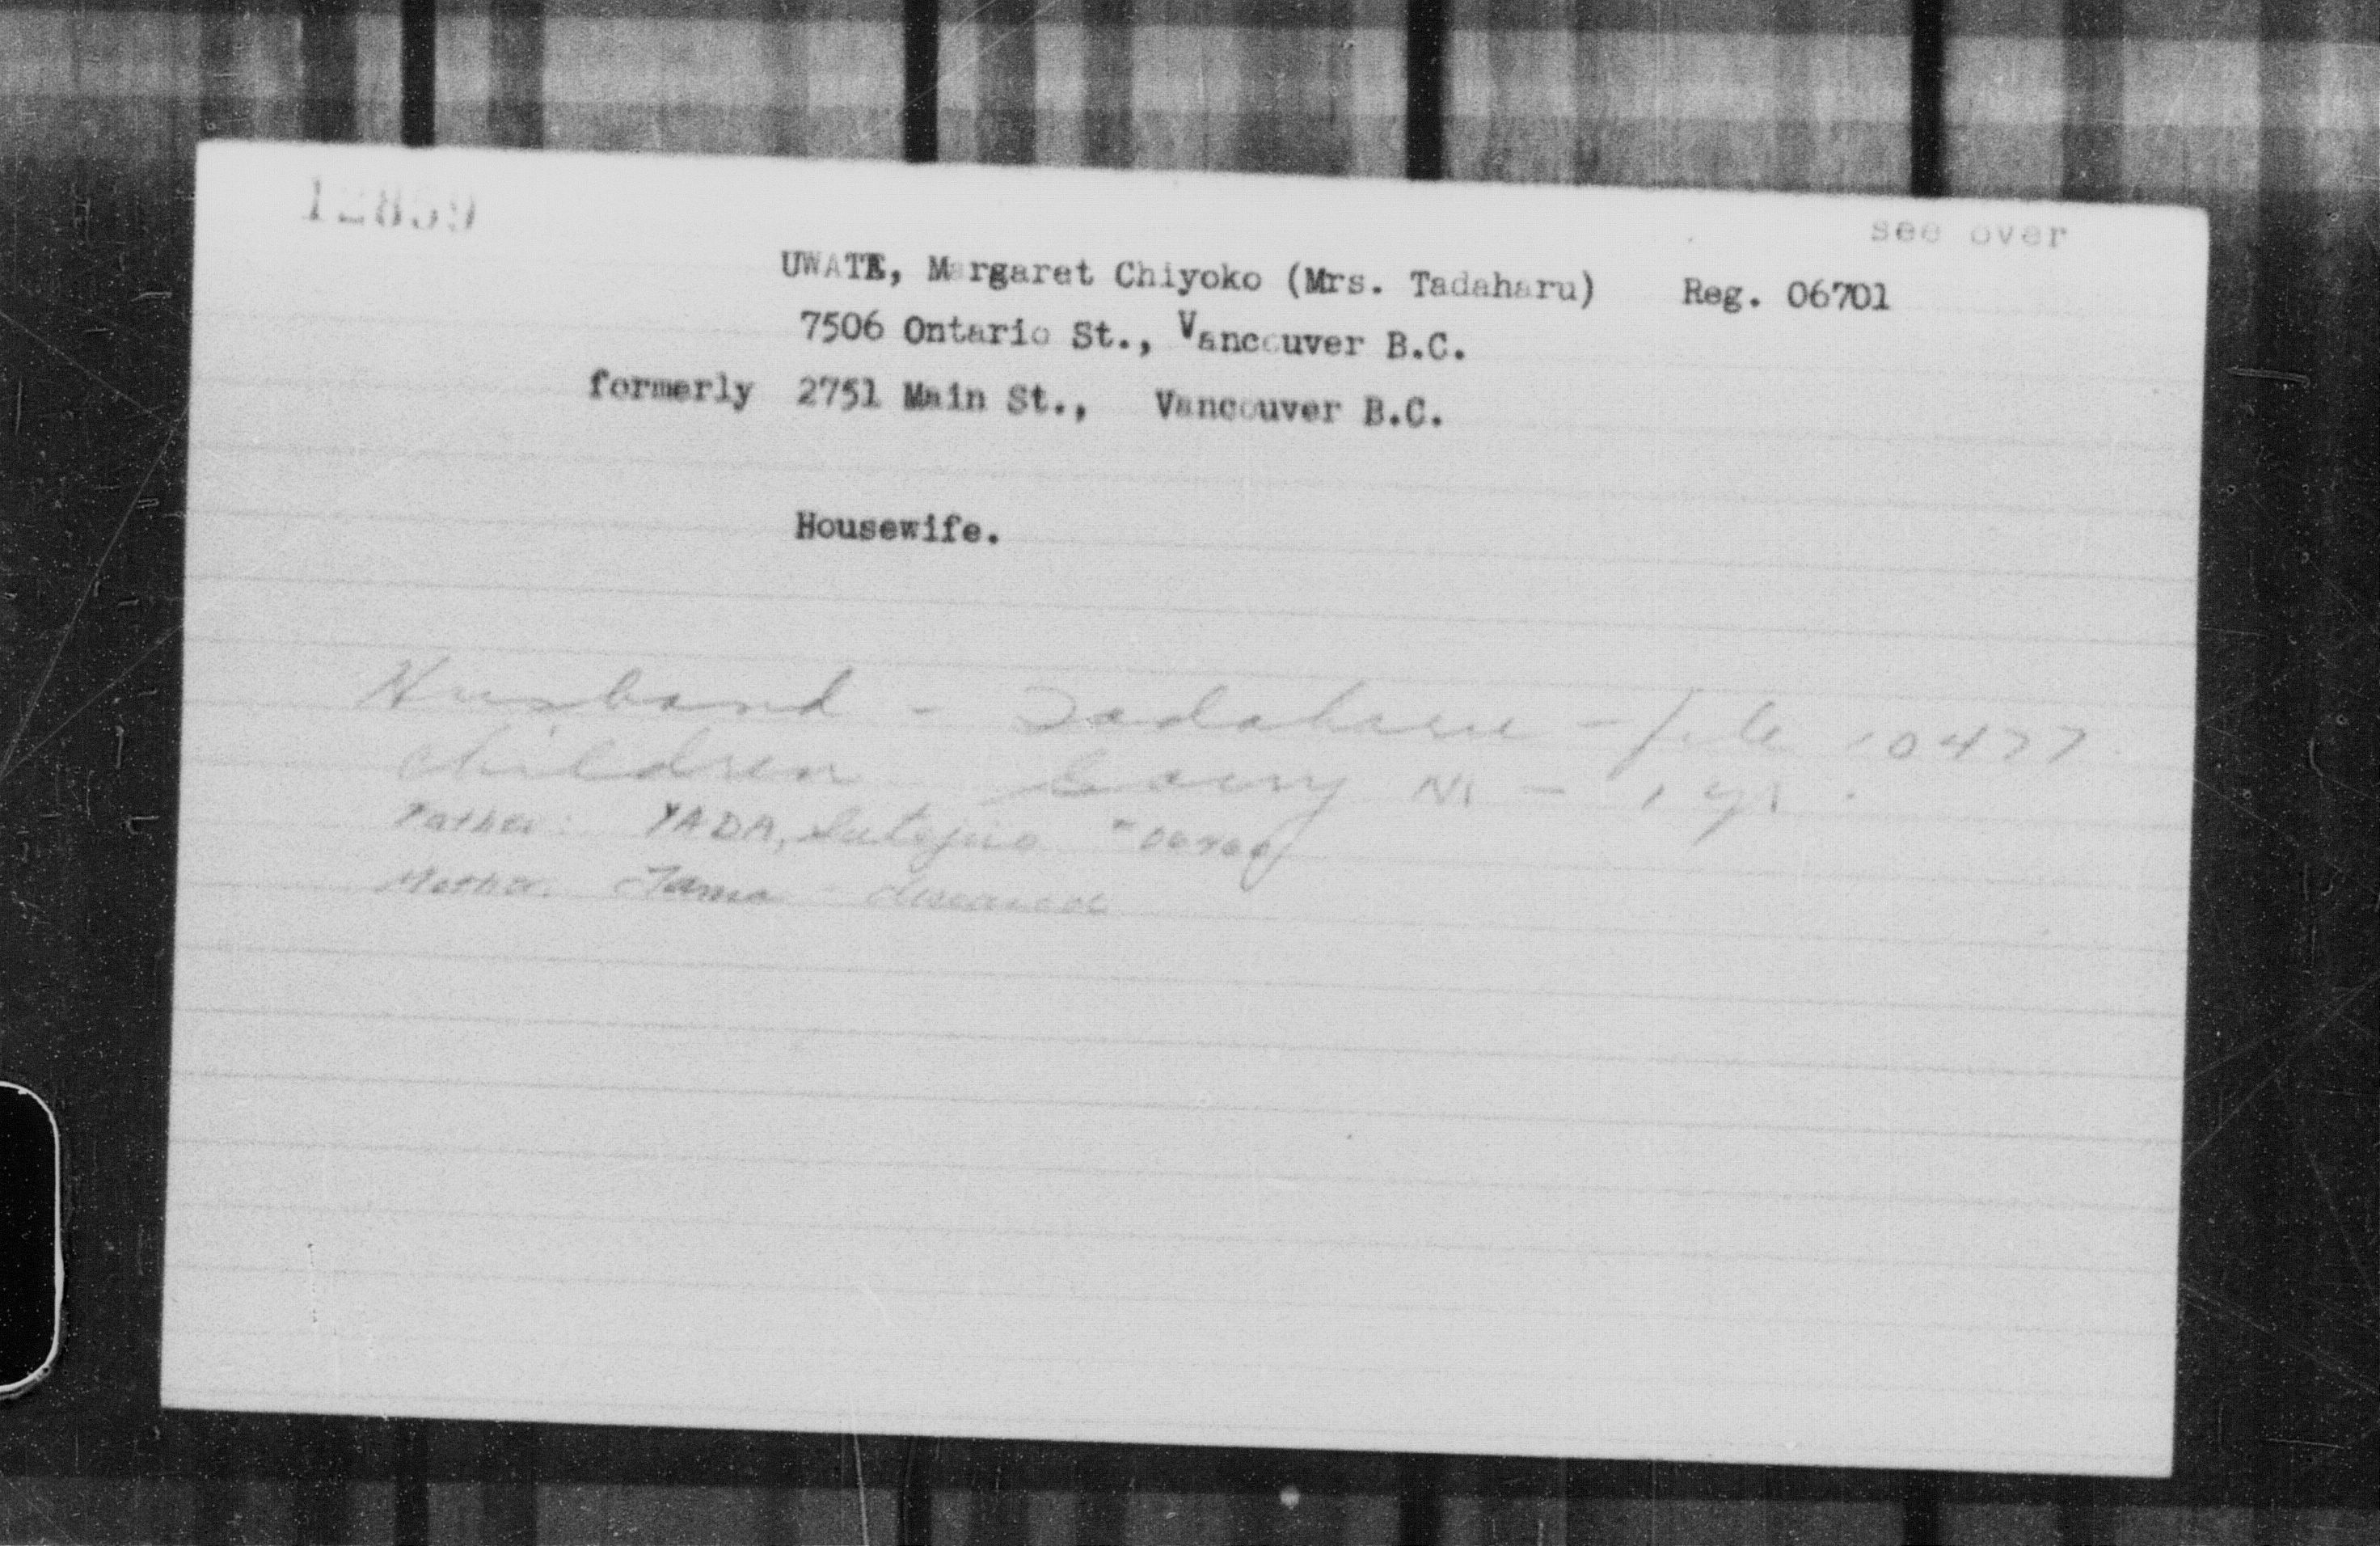 12859
see over
UWATE, Margaret Chiyoko (Mrs. Tadaharu) Reg. 06701
7506 Ontario St., Vancouver B.C.
formerly 2751 Main St., Vancouver B.C.
Housewife.
Husband - Tadaharu - file 10477
children M - 1 yr.
Father: YADA,
Mother: - deceased